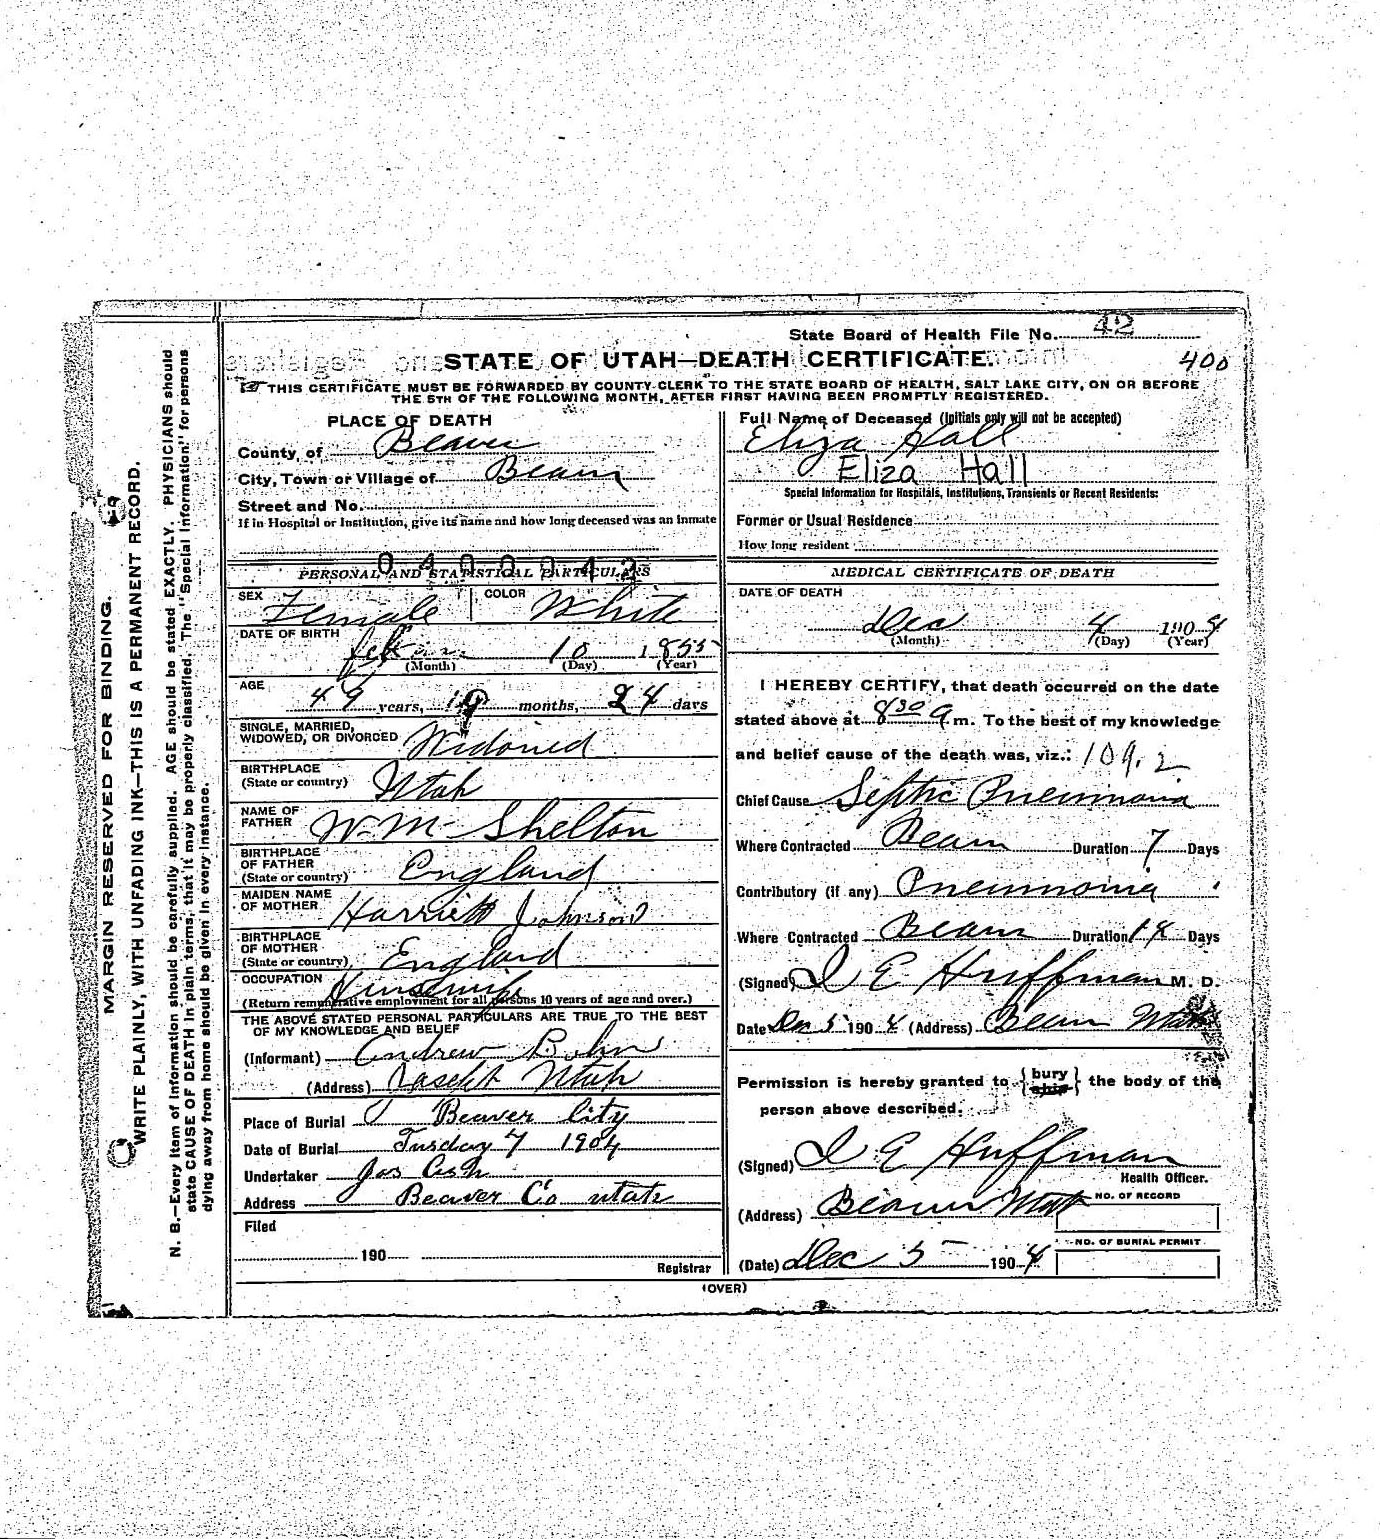 State Board of Health File No. 42
STATE OF UTAH—DEATH CERTIFICATE.
400
THIS CERTIFICATE MUST BE FORWARDED BY COUNTY CLERK TO THE STATE BOARD OF HEALTH, SALT LAKE CITY, ON OR BEFORE
THE 5TH OF THE FOLLOWING MONTH, AFTER FIRST HAVING BEEN PROMPTLY REGISTERED.
MARGIN RESERVED FOR BINDING.
WRITE PLAINLY, WITH UNFADING INK—THIS IS A PERMANENT RECORD.
N. B.—Every item of information should be carefully supplied. AGE should be stated EXACTLY. PHYSICIANS should
state CAUSE OF DEATH in plain terms, that it may be properly classified. The "Special Information" for persons
dying away from home should be given in every instance.
PLACE OF DEATH
County of Beaver
City, Town or Village of Beaver
Street and No.
If in Hospital or Institution, give its name and how long deceased was an inmate
0400042
PERSONAL AND STATISTICAL PARTICULARS
SEX Female COLOR White
DATE OF BIRTH
10 1855
(Month) (Day) (Year)
AGE
49 years, 9 months, 24 days
SINGLE, MARRIED,
WIDOWED, OR DIVORCED Widowed
BIRTHPLACE
(State or country) Utah
NAME OF
FATHER Wm Shelton
BIRTHPLACE
OF FATHER
(State or country) England
MAIDEN NAME
OF MOTHER Harriett Johnson
BIRTHPLACE
OF MOTHER
(State or country) England
OCCUPATION Housewife
(Return remunerative employment for all persons 10 years of age and over.)
THE ABOVE STATED PERSONAL PARTICULARS ARE TRUE TO THE BEST
OF MY KNOWLEDGE AND BELIEF
(Informant) Andrew
(Address) Utah
Place of Burial Beaver City
Date of Burial Tusday 7 1904
Undertaker Jos Cash
Address Beaver Co utah
Filed
190
Registrar
Full Name of Deceased (Initials only will not be accepted)
Eliza Hall
Eliza Hall
Special Information for Hospitals, Institutions, Transients or Recent Residents:
Former or Usual Residence
How long resident
MEDICAL CERTIFICATE OF DEATH
DATE OF DEATH
Dec 4 1904
(Month) (Day) (Year)
I HEREBY CERTIFY, that death occurred on the date
stated above at 8 30 a m. To the best of my knowledge
and belief cause of the death was, viz.: 109.2
Chief Cause Septic Pneumonia
Where Contracted Beaver Duration 7 Days
Contributory (if any) Pneumonia
Where Contracted Beaver Duration 18 Days
(Signed) I E Huffman M. D.
Date Dec 5 1904 (Address) Beaver Utah
Permission is hereby granted to { bury ship } the body of the
person above described.
(Signed) I E Huffman
Health Officer.
(Address) Beaver Utah NO. OF RECORD
NO. OF BURIAL PERMIT
(Date) Dec 5 1904
(OVER)